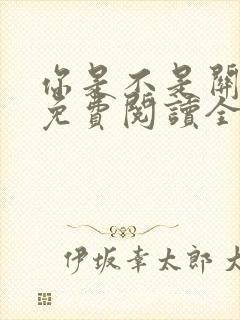 你是不是開
免費閱讀全
伊坂幸太郎 大